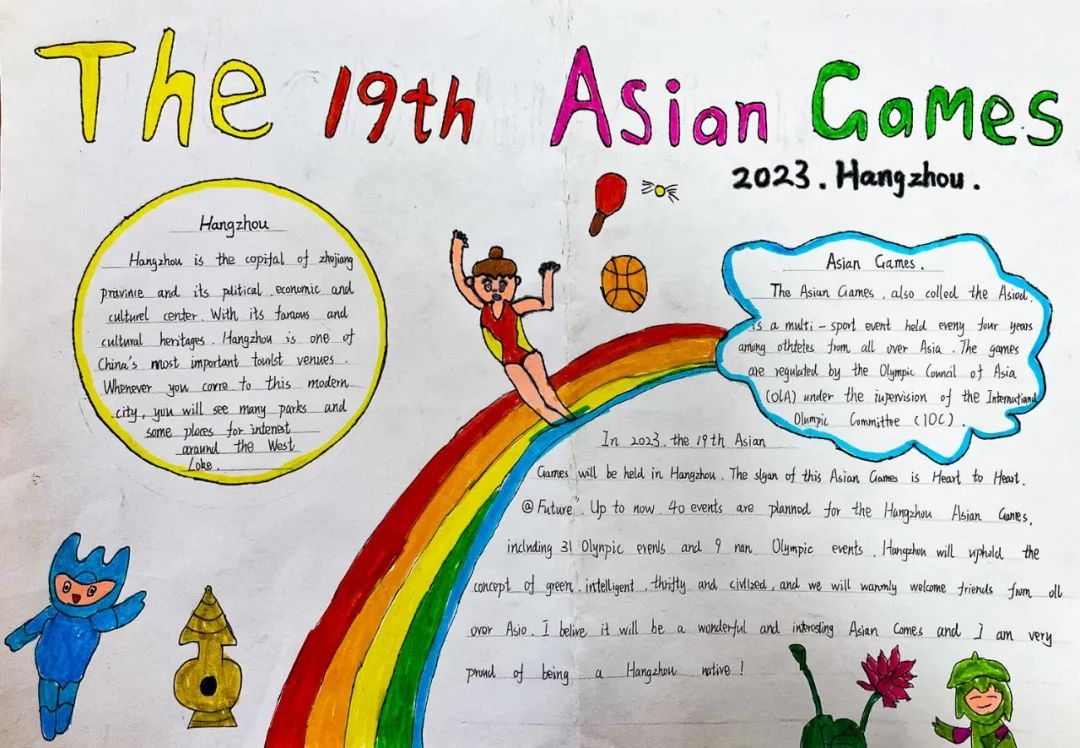 The 19th Asian Games
2023. Hangzhou.
Hangzhou
Hangzhou is the copital of zhejiang
province and its political economic and
culturel center. With its famous and
cultural heritages. Hangzhou is one of
China's most important tourist venues.
Whenever you come to this modern
city, you will see many parks and
some places for interest
around the West
Lake.
Asian Games.
The Asian Games, also colled the Asiod,
is a multi-sport event held eveny four years
among othteles from all over Asia. The games
are regulated by the Olympic Council of Asia
(OCA) under the supervision of the International
Olumpic Committee (IOC).
In 2023, the 19th Asian
Games will be held in Hangzhou. The slgan of this Asian Games is Heart to Heart.
@Future". Up to now. 40 events are planned for the Hangzhou Asian Games,
including 31 Olynpic events and 9 nan Olympic events. Hangzhou will uphold the
concept of green. intelligent. thrifty and civilized, and we will wanmly welcome friends from oll
ovor Asio. I belive it will be a wonderful and interesting Asian Comes and I am very
proud of being a Hangzhou native!